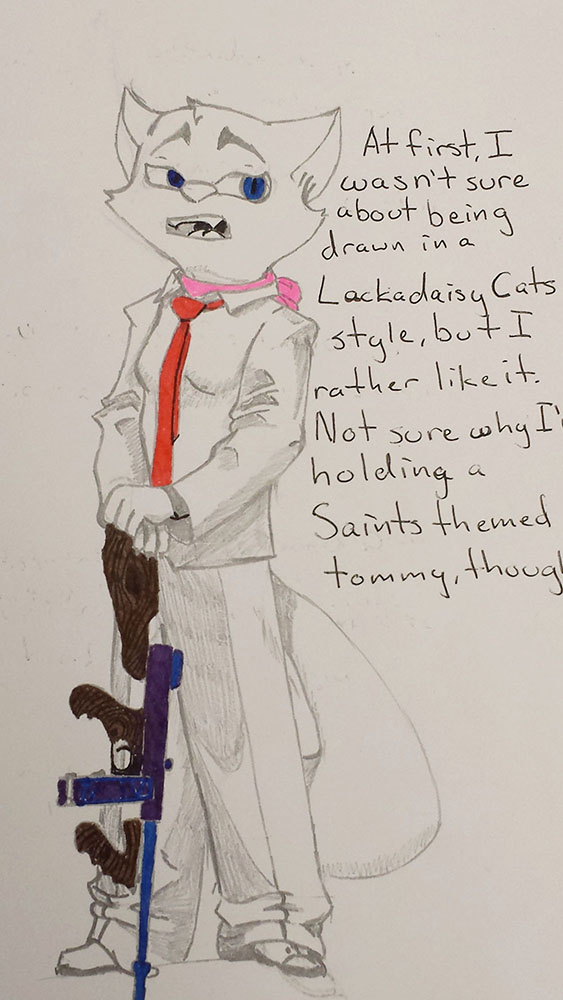 At first, I
wasn't sure
about being
drawn in a
Lackadaisy Cats
style, but I
rather like it.
Not sure why I'
holding a
Saints themed
tommy, thoug